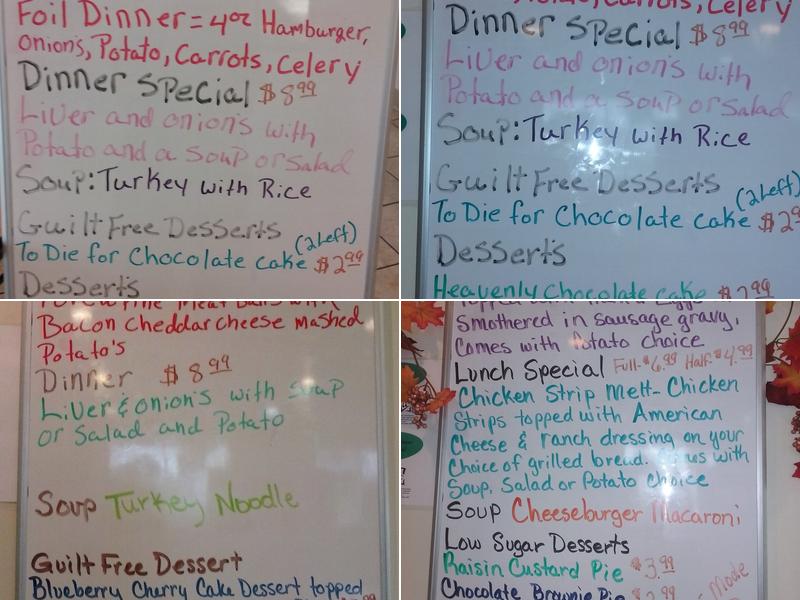 Foil Dinner = 4oz Hamburger,
Onions, Potato, Carrots, Celery
Dinner Special $8.99
Liver and onion's with
Potato and a Soup or Salad
Soup: Turkey with Rice
Guilt Free Desserts
(2 Left)
To Die for Chocolate cake $2.99
Desserts
Carrots, Celery
Dinner Special $8.99
Liver and onion's with
Potato and a Soup or Salad
Soup: Turkey with Rice
Guilt Free Desserts
(2 Left)
To Die for Chocolate cake $2
Desserts
Heavenly Chocolate cake $2.99
Meat Balls with
Bacon cheddar cheese mashed
Potato's
Dinner $8.99
Liver & onion's with Soup
or Salad and Potato
Soup Turkey Noodle
Guilt Free Dessert
Blueberry Cherry Cake Dessert topped
Smothered in sausage gravy,
Comes with Potato choice
Lunch Special Full-$6.99 Half-$4.99
Chicken Strip Melt- Chicken
Strips topped with American
Cheese & ranch dressing on your
Choice of grilled bread. with
Soup, Salad or Potato Choice
Soup Cheeseburger Macaroni
Low Sugar Desserts
Raisin Custard Pie $3.99
Mode
Chocolate Brownie Pie